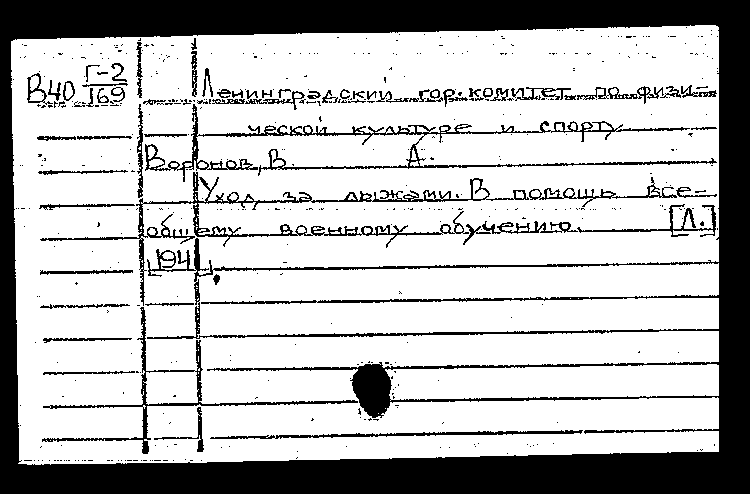 В40 Г-2/169
Ленинградский гор. комитет по физи-
ческой культуре и спорту
Воронов, В. А.
Уход за лыжами. В помощь все-
общему военному обучению. [Л.]
[1941].